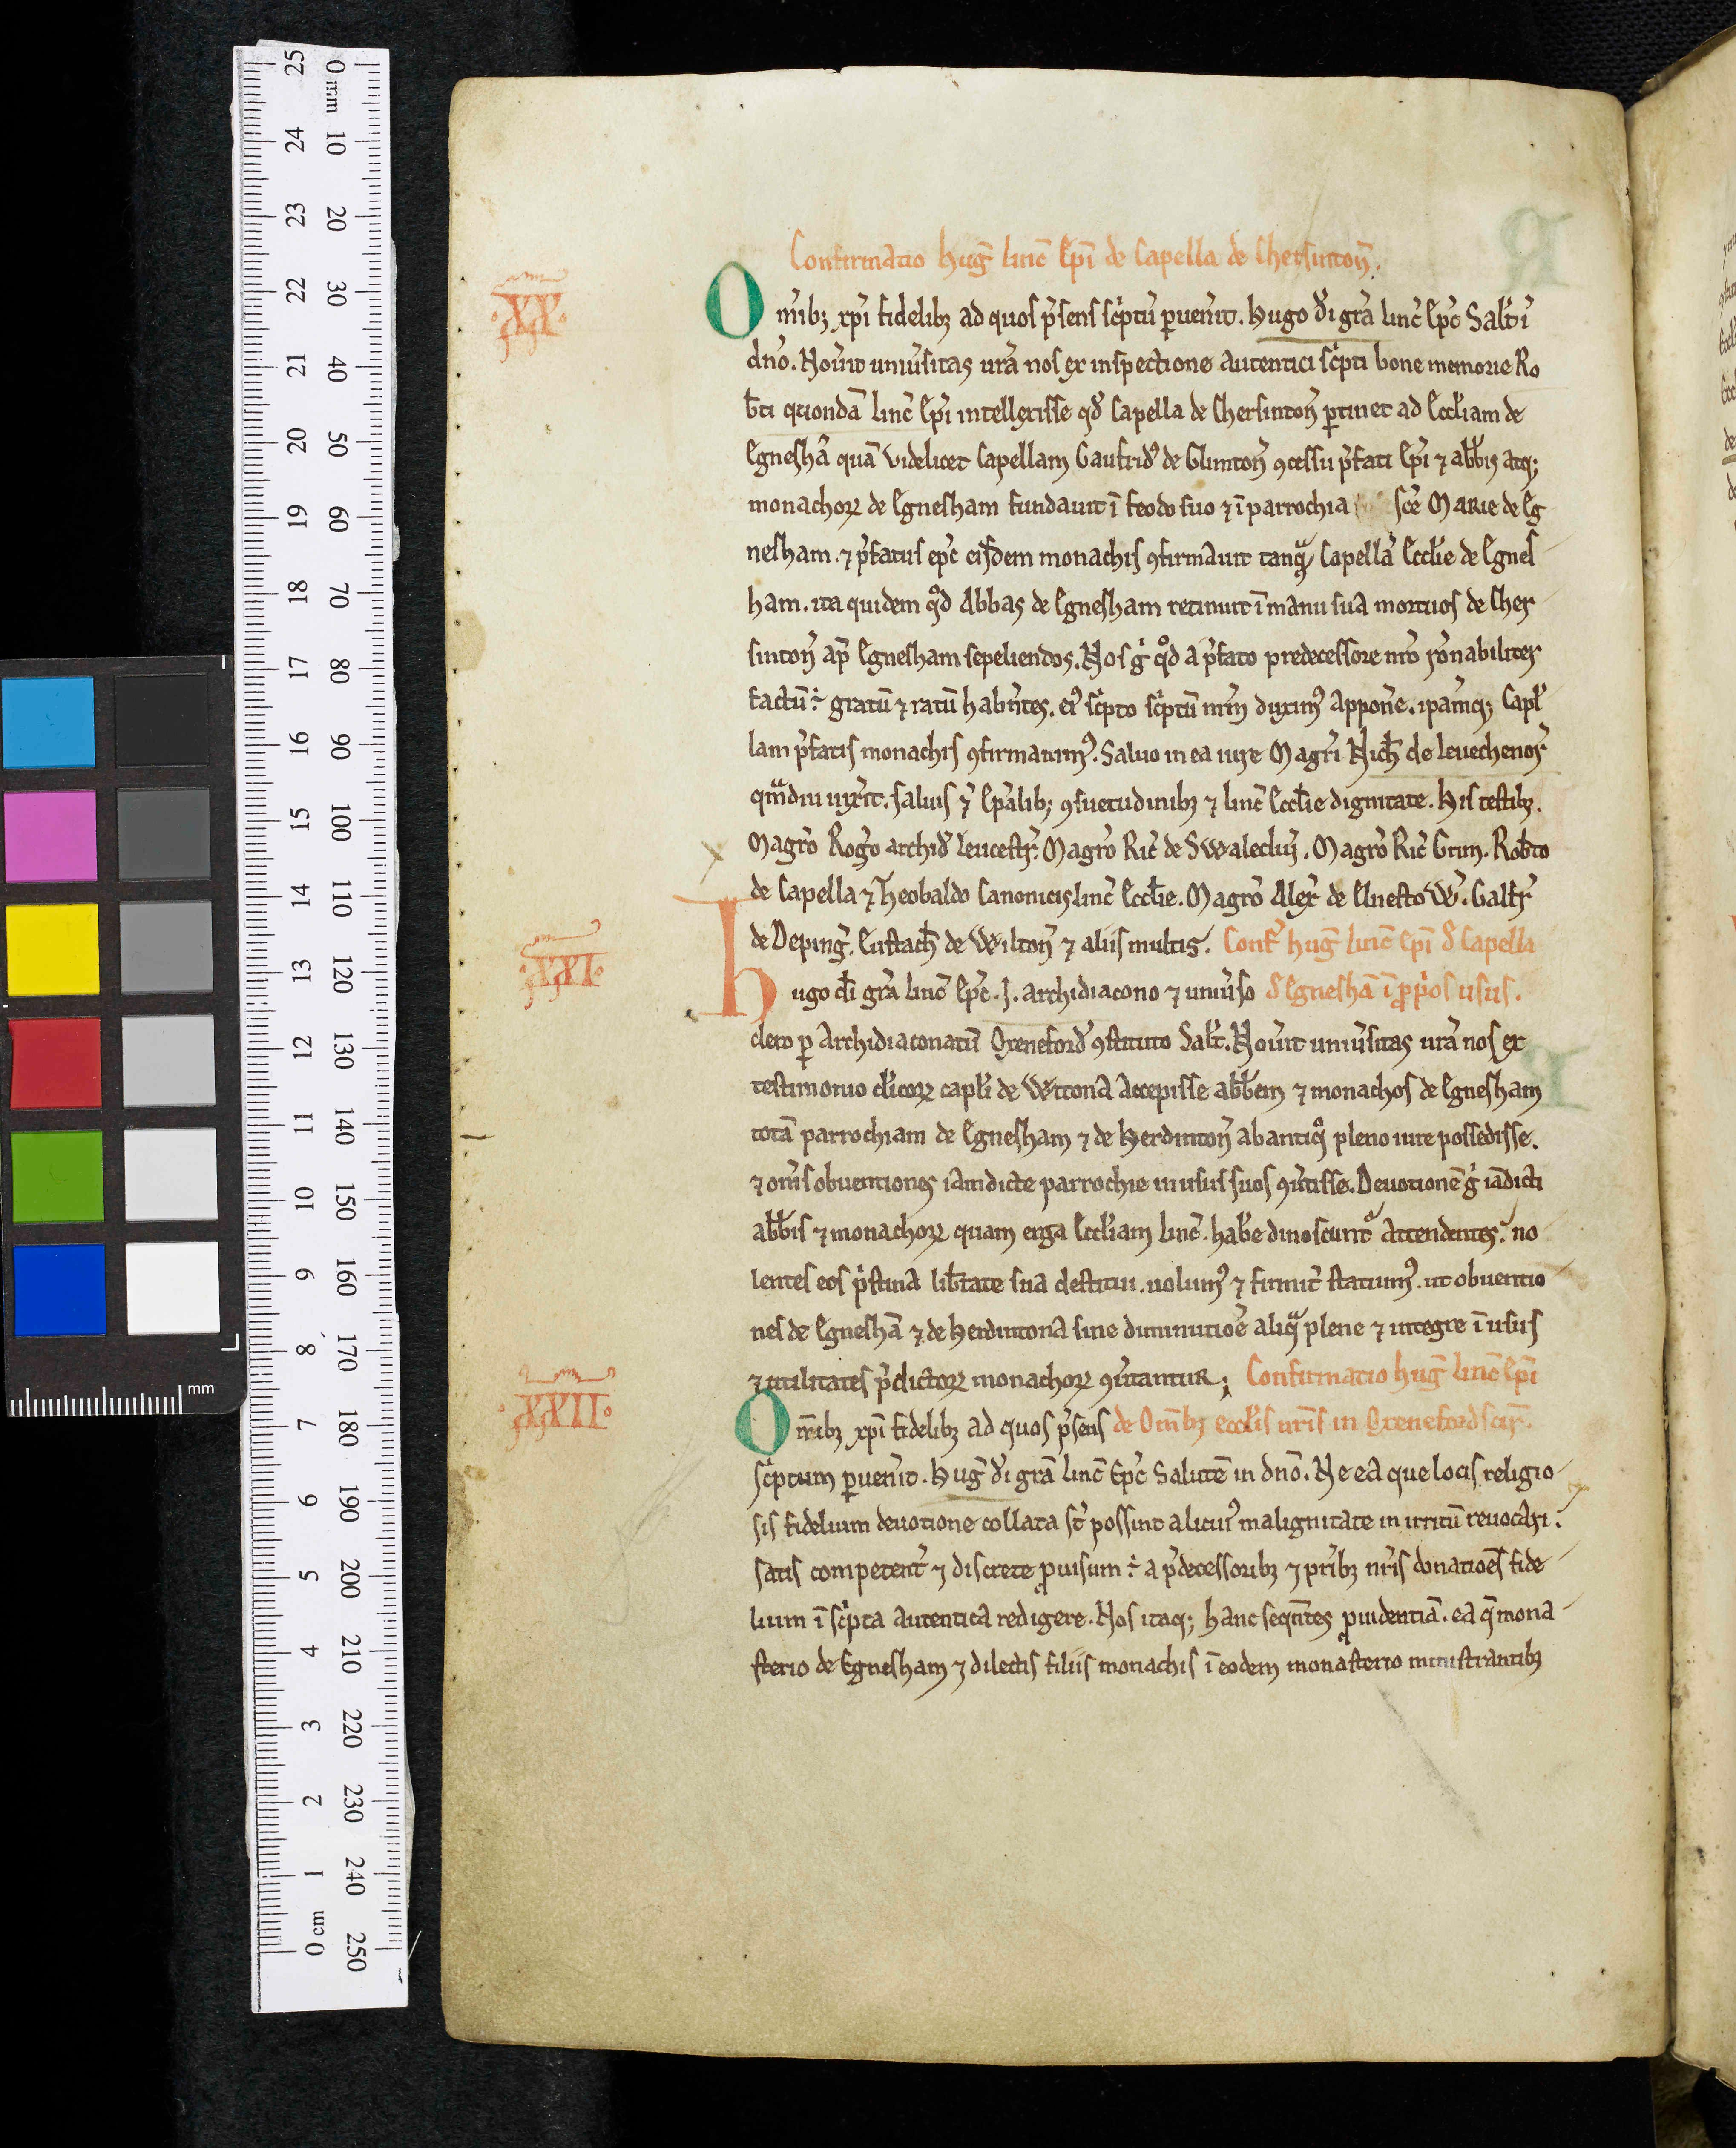 Confirmatio hug̅ linc̅ Ep̅i de Capella de Chersinton̅.
.XX.
Om̅ib; xp̅i fidelib; ad quos p̅sens sc͛ptu̅ ꝑuen̅it. Hugo d̅i gr̅a linc̅ Ep̅c Salt̅ i̅
dn̅o. Nou̅it uniu̅sitas ur̅a nos ex inspectione autentici sc͛pti bone memorie Ro
b̅ti quonda̅ linc̅ Ep̅i intellexisse qd̅ Capella de Chersinton̅ ꝑtinet ad Eccl̅iam de
Egnesha̅ qua̅ videlicet Capellam Gaufrid᷒ de Glinton̅ ꝯcessu p̅fati Ep̅i ⁊ abb̅is atq;
monachoꝝ de Egnesham fundauit i̅ feodo suo ⁊ i̅ parrochia sc̅e Marie de Eg
nesham. ⁊ p̅fatus ep̅c eisdem monachis ꝯfirmauit tanqᵃ̅ Capella̅ Eccl̅ie de Egnes
ham. ita quidem qd̊ Abbas de Egnesham retinuit i̅ manu sua mortuos de Cher
sinton̅ ap̅ Egnesham sepeliendos. Nos g̊ qd̊ a p̅fato predecessore nr̅o ro̅nabiliter
factu̅ ÷ gratu̅ ⁊ ratu̅ habe̅ntes. ei᷒ sc͛pto sc͛ptu̅ nr̅m duxim᷒ appone̅. ip̅amq; Capl̅
lam p̅fatis monachis ꝯfirmauim᷒. Saluo in ea iure Magr̅i Nich̅ de Leuechenor̅
qᵃ̅mdiu uix̅it. saluis ⁊ Ep̅alib; ꝯsuetudinib; ⁊ linc̅ Eccl̅ie dignitate. His testib;.
Magr̅o Rog̅o archid̅ Leicestr̅. Magr̅o Ric̅ de Swalecliu̅. Magr̅o Ric̅ Grim. Rob̅to
de Capella ⁊ Theobaldo Canonicis linc̅ Eccl̅ie. Magr̅o Alex̅ de Elnesto W̅. Galfr̅
de Deping̅. Eustach̅ de Wilton̅ ⁊ aliis multis. Conf̅ hug̅ linc̅ Ep̅i d̅ Capella
.XXI.
Hugo d̅i gr̅a linc̅ Ep̅c. J. archidiacono ⁊ uniu̅so d̅ Egnesha̅ i̅ ꝓp͛os usus.
clero ꝑ Archidiaconatu̅ Oxeneford̅ ꝯstituto Salt̅. Nou̅it uniu̅sitas ur̅a nos ex
testimonio cl̅icoꝝ capl̅i de Wttona accepisse abb̅em ⁊ monachos de Egnesham
tota̅ parrochiam de Egnesham ⁊ de Herdinton̅ ab antiqͦ pleno iure possedisse.
⁊ om̅s obuentiones iamdicte parrochie in usus suos ꝯu̅tisse. Deuotione̅ g̊ ia̅dicti
abb̅is ⁊ monachoꝝ quam erga Eccl̅iam linc̅. habe̅ dinoscunt᷑ attendentes. no
lentes eos p͛stina lib̅tate sua destitui. uolum᷒ ⁊ firmit̅ statuim᷒. ut obuentio
nes de Egnesha̅ ⁊ de herdintona sine diminutio̅e aliqᵃ plene ⁊ integre i̅ usus
⁊ utilitates p̅dictoꝝ monachoꝝ ꝯu̅tantur; Confirmatio hug̅ linc̅ Ep̅i
.XXII.
Om̅ib; xp̅i fidelib; ad quos p̅sens de Om̅ib; eccl̅is nr̅is in Oxenefordscir̅.
sc͛ptum ꝑuen̅it. Hug̅ d̅i gr̅a linc̅ Ep̅c Salute̅ in dn̅o. Ne ea que locis religio
sis fidelium deuotione collata st̅ possint alicui᷒ malignitate in irritu̅ reuocari.
satis competent̅ ⁊ discrete ꝓuisum ÷ a p̅decessorib; ⁊ pr̅ib; nr̅is donatio̅es fide
lium i̅ sc͛pta autentica redigere. Nos itaq; hanc seqn̅tes ꝓuidentia̅. ea q̅ mona
sterio de Egnesham ⁊ dilectis filiis monachis i̅ eodem monasterio ministrantib;